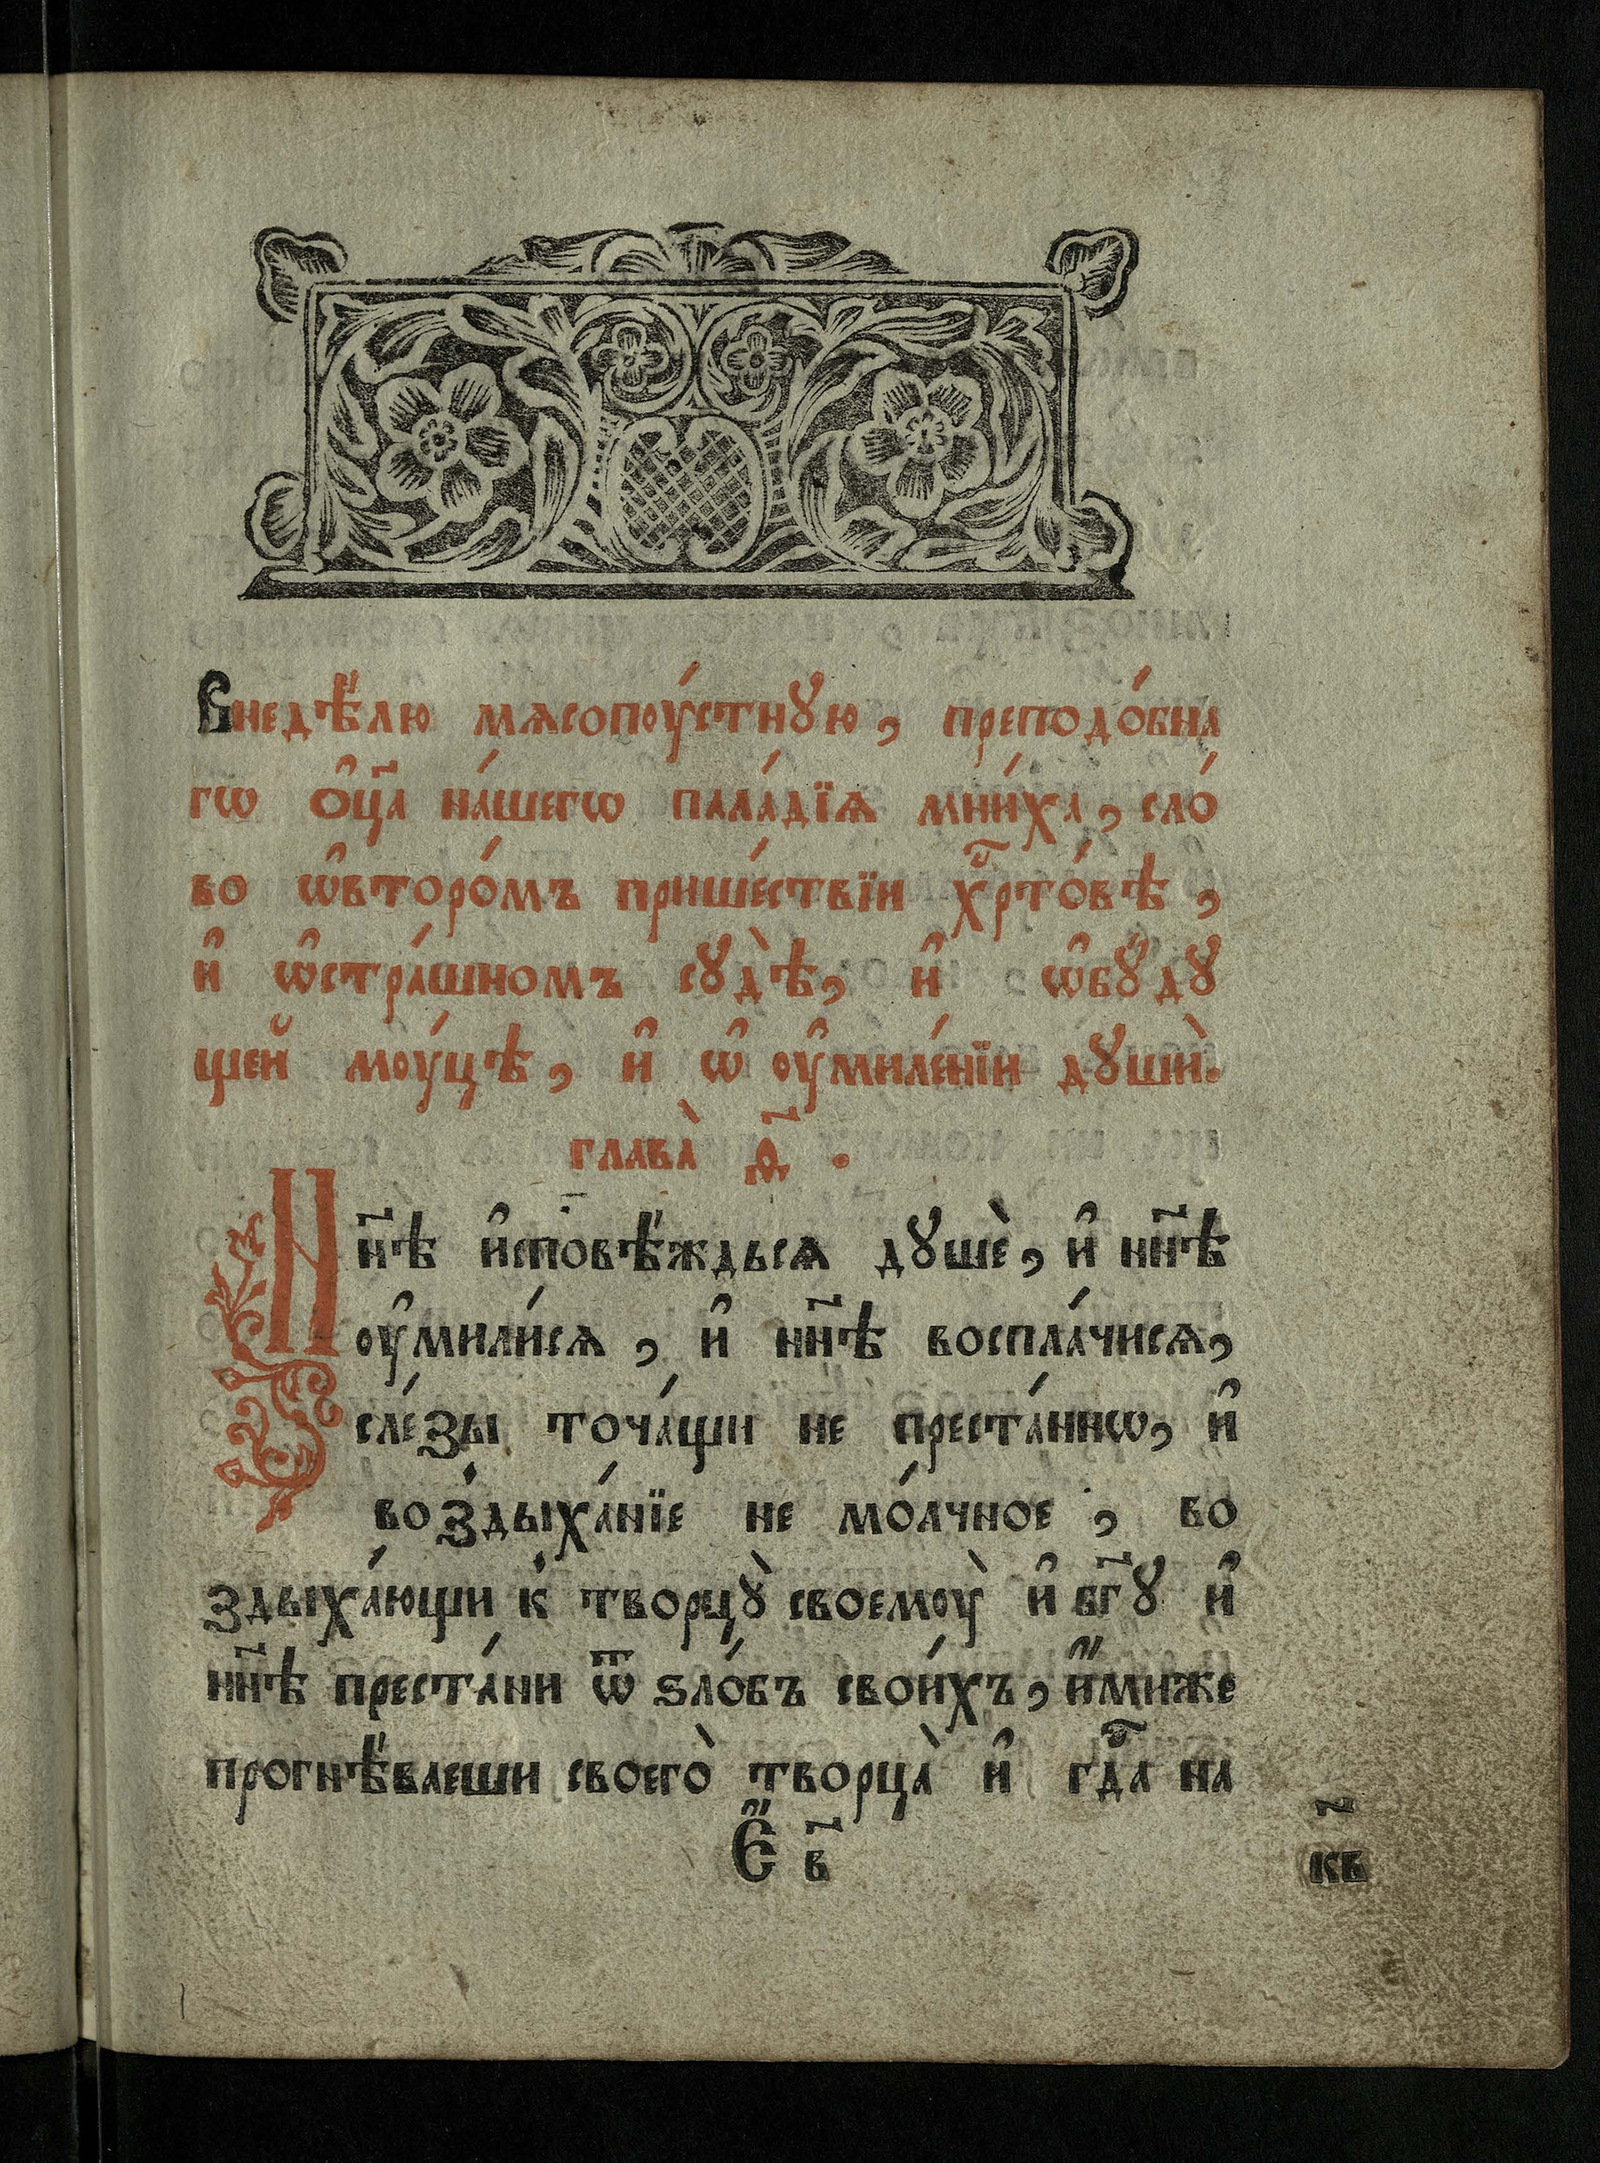 Внедѣ́лю мѧсопоу́стнꙋю, преподо́бна
гѡ ѻ҆ц҃а на́шегѡ пала́дїѧ мни́ха, сло́
во ѡ҆второ́мъ прише́ствїи хрⷭ҇то́вѣ,
и҆ ѡ҆стра́шномъ сꙋдѣ̀, и҆ ѡ҆бꙋ́дꙋ
щей моу́цѣ, и҆ ѡ҆ оу҆миле́нїи дꙋшѝ.
глава̀ д҃.
Нн҃ѣ и҆споѣ́ждьсѧ дꙋшѐ, и҆ нн҃ѣ
оу҆мили́сѧ, и҆ нн҃ѣ воспла́чисѧ,
сле́зы точа́щи не преста́ннѡ, и҆
воздыха́нїе не мо́лчное, во
здыха́ющи к̾ творцꙋ̀ своемоу̀ и҆ бг҃ꙋ и҆
нн҃ѣ преста́ни ѿ ѕло́бъ свои́хъ, и҆́миже
прогнѣ́ваеши своего̀ творца̀ и҆ гдⷭ҇а на
Є҆́ в҃
к҃в